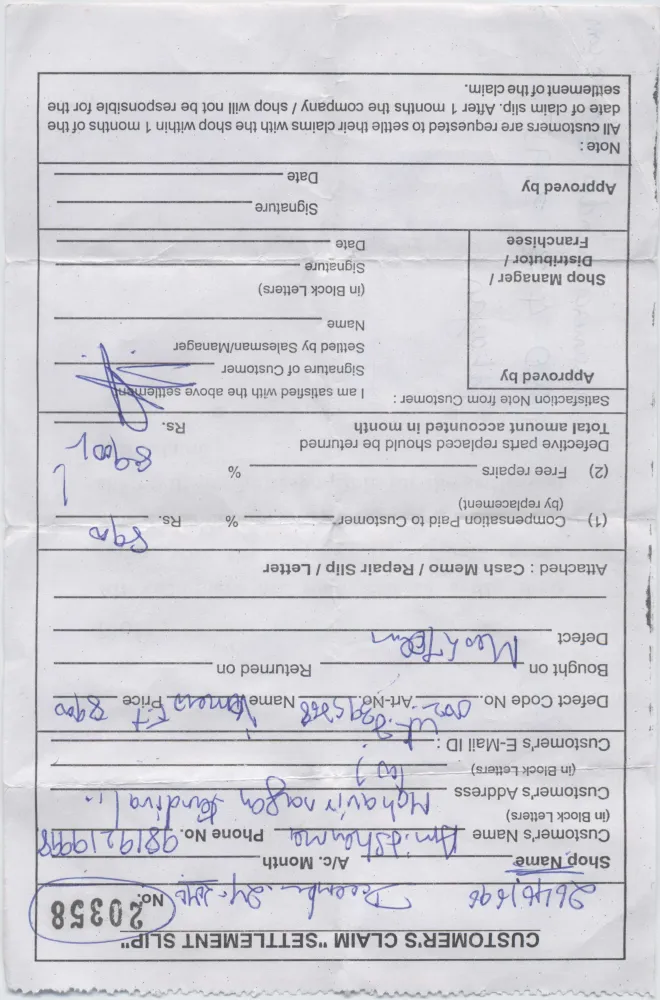 CUSTOMER'S CLAIM "SETTLEMENT SLIP"
No. 20358
Shop Name A/c. Month
Customer's Name Amit Sharma Phone No. 9819219998
(in Block Letters)
Customer's Address Mahavir nagar Kandivali
(in Block Letters)
Customer's E-Mail ID :
Defect Code No. 002 Art-No. Name Price 8900
Bought on Returned on
Defect Mesh
Attached : Cash Memo / Repair Slip / Letter
(1) Compensation Paid to Customer % Rs. 8900
(by replacement)
(2) Free repairs %
Defective parts replaced should be returned
Total amount accounted in month Rs. 8900/
Satisfaction Note from Customer :
I am satisfied with the above settlement
Signature of Customer
Settled by Salesman/Manager
Name
(in Block Letters)
Signature
Date
Approved by
Shop Manager /
Distributor /
Franchisee
Signature
Date
Approved by
Note :
All customers are requested to settle their claims with the shop within 1 months of the
date of claim slip. After 1 months the company / shop will not be responsible for the
settlement of the claim.